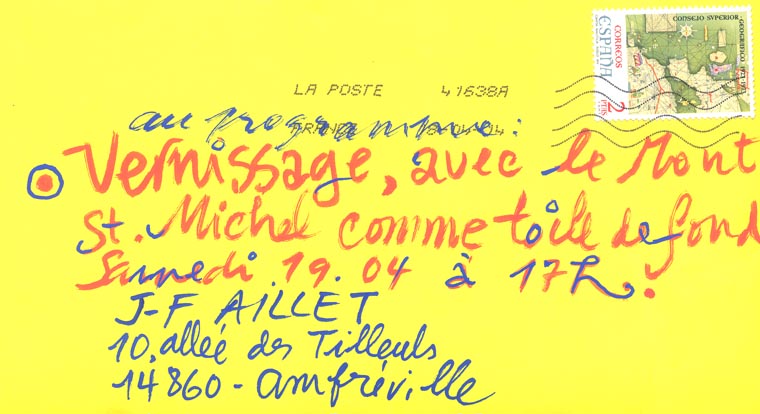 CONSEJO SUPERIOR
GEOGRAFICO
CORREOS
ESPAÑA
2
PTAS
LA POSTE 41638A
au programme :
Vernissage, avec le Mont
St. Michel comme toile de fond
Samedi 19. 04 à 17h.
J-F AILLET
10, allée des Tilleuls
14860 - Amfréville